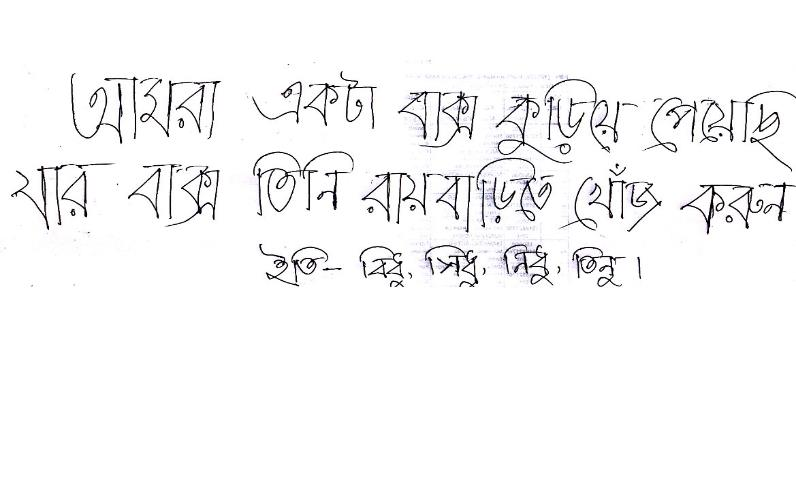 আমরা একটা বাক্স কুড়িয়ে পেয়েছি
যার বাক্স তিনি রায়বাড়িতে খোঁজ করুন
ইতি – বিধু, সিধু, নিধু, তিনু।